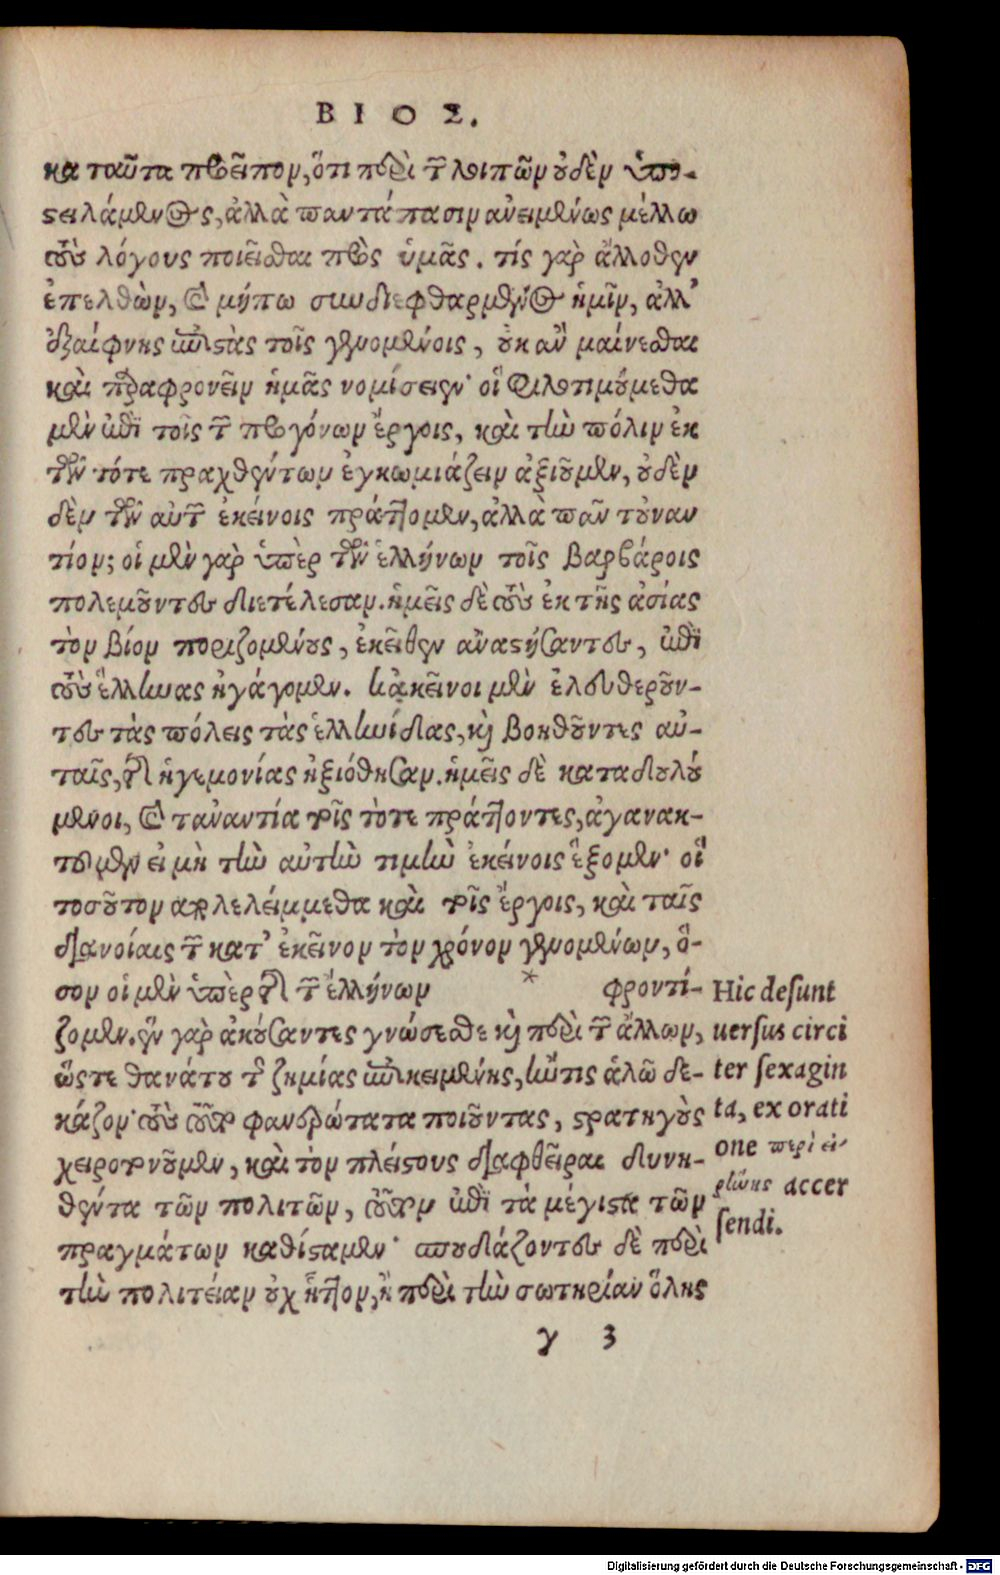 ΒΙΟΣ.
κα ταῦτα προεῖπον, ὅτι περὶ τῶν λοιπῶν οὐδὲν ὑπο-
στειλάμενος, ἀλλὰ παντάπασιν ἀνειμένως μέλλω
τοὺς λόγους ποιεῖσθαι πρὸς ὑμᾶς. τίς γὰρ ἄλλοθεν
ἐπελθὼν, καὶ μήπω συνδιεφθαρμένος ἡμῖν, ἀλλ'
ἐξαίφνης ἐπιστὰς τοῖς γενομένοις, οὐκ ἂν μαίνεσθαι
καὶ παραφρονεῖν ἡμᾶς νομίσειεν· οἳ φιλοτιμούμεθα
μὲν ἐπὶ τοῖς τῶν προγόνων ἔργοις, καὶ τὴν πόλιν ἐκ
τῶν τότε πραχθέντων ἐγκωμιάζειν ἀξιοῦμεν, οὐδὲν
δὲν τῶν αὐτῶν ἐκείνοις πράττομεν, ἀλλὰ πᾶν τοὐναν
τίον; οἱ μὲν γὰρ ὑπὲρ τῶν ἑλλήνων τοῖς βαρβάροις
πολεμοῦντες διετέλεσαν. ἡμεῖς δὲ τοὺς ἐκ τῆς ἀσίας
τὸν βίον ποριζομένους, ἐκεῖθεν ἀναστήσαντες, ἐπὶ
τοὺς ἕλληνας ἠγάγομεν. κἀκεῖνοι μὲν ἐλευθεροῦν-
τες τὰς πόλεις τὰς ἑλληνίδας, καὶ βοηθοῦντες αὐ-
ταῖς, τῆς ἡγεμονίας ἠξιόθησαν. ἡμεῖς δὲ καταδουλού
μενοι, καὶ τἀναντία τοῖς τότε πράττοντες, ἀγανακ-
τοῦμεν εἰ μὴ τὴν αὐτὴν τιμὴν ἐκείνοις ἕξομεν· οἳ
τοσοῦτον ἀπολελείμμεθα καὶ τοῖς ἔργοις, καὶ ταῖς
διανοίαις τῶν κατ' ἐκεῖνον τὸν χρόνον γενομένων, ὅ-
σον οἱ μὲν ὑπὲρ τῆς τῶν ἑλλήνων * φροντί-
ζομεν. ἓν γὰρ ἀκούσαντες γνώσεσθε καὶ περὶ τῶν ἄλλων,
ὥστε θανάτου τῆς ζημίας ἐπικειμένης, ἤν τις ἁλῶ δε-
κάζον· τοὺς τοῦτο φανερώτατα ποιοῦντας, στρατηγοὺς
χειροτονοῦμεν, καὶ τὸν πλείστους διαφθεῖραι δυνη-
θέντα τῶν πολιτῶν, τοῦτον ἐπὶ τὰ μέγιστα τῶν
πραγμάτων καθίσταμεν· σπουδάζοντες δὲ περὶ
τὴν πολιτείαν οὐχ ἧττον, ἢ περὶ τὴν σωτηρίαν ὅλης
γ 3
Hic desunt
uersus circi
ter sexagin
ta, ex orati
one περὶ εἰ-
ρήνης accer
sendi.
Digitalisierung gefördert durch die Deutsche Forschungsgemeinschaft - DFG